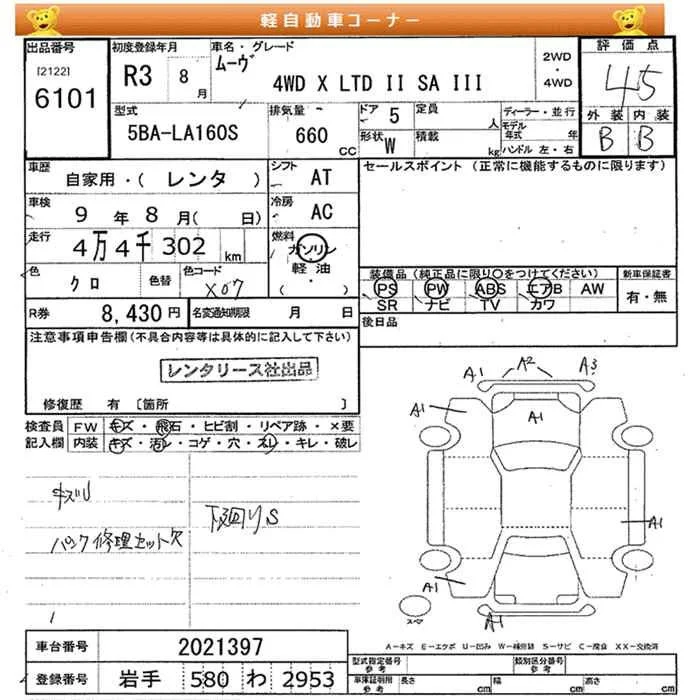 軽自動車コーナー
出品番号
[2122]
6101
初度登録年月
R3 8月
車名・グレード
ムーヴ
4WD X LTD II SA III
2WD
・
4WD
評価点
4.5
外装 内装
B B
型式
5BA-LA160S
排気量
660
CC
ドア 5
形状 W
定員
人
積載
kg
ディーラー・並行
モデル年式 年
ハンドル 左・右
車歴
自家用・( レンタ )
シフト
AT
セールスポイント(正常に機能するものに限ります)
車検
9 年 8 月( 日)
冷房
AC
走行
4万4千302 km
燃料
ガソリン
軽油
( ・ )
色
クロ
色替
色コード
X07
装備品(純正品に限り○をつけてください)
PS PW ABS エアB AW
SR ナビ TV カワ
新車保証書
有・無
R券
8,430 円
名変通知期限 月 日
後日品
注意事項申告欄(不具合内容等は具体的に記入して下さい)
レンタリース社出品
修復歴 有 〔箇所 〕
検査員
記入欄
FW キズ・飛石・ヒビ割・リペア跡・×要
内装 キズ・汚レ・コゲ・穴・スレ・キレ・破レ
キズU
下廻りS
パンク修理セット欠
A1 A2 A3
A1
A1
A1
A1
A1
スペア
A-キズ E-エクボ U-凹み W-補修跡 S-サビ C-腐食 XX-交換済
車台番号
2021397
登録番号
岩手 580 わ 2953
型式指定番号
参考
類別区分番号
参考
車庫証明用
参考
長さ cm
幅 cm
高さ cm